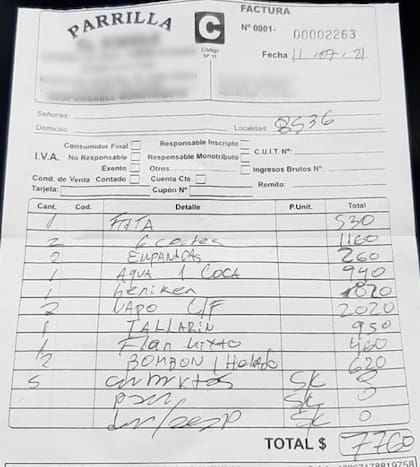 PARRILLA
RESPONSABLE MONOTRIBUTO
C
Código
Nº 11
FACTURA
Nº 0001- 00002263
Fecha 11/07/21
Señores:
Domicilio: Localidad: 8536
I.V.A.
Consumidor Final Responsable Inscripto
No Responsable Responsable Monotributo C.U.I.T. Nº:
Exento Otros Ingresos Brutos Nº:
Cond. de Venta Contado Cuenta Cte. Remito:
Tarjeta: Cupón Nº
Cant. Cod. Detalle P.Unit. Total
1 530
2 1160
2 EMPANADAS 260
1 AGUA 1 COCA 940
1 heniken 820
2 VAPO C/F 2020
1 TALLARIN 950
1 Flan Mixto 460
2 BOMBON / Helado 620
5 cubiertos SK 0
pan SK 0
SK 0
TOTAL $ 7760